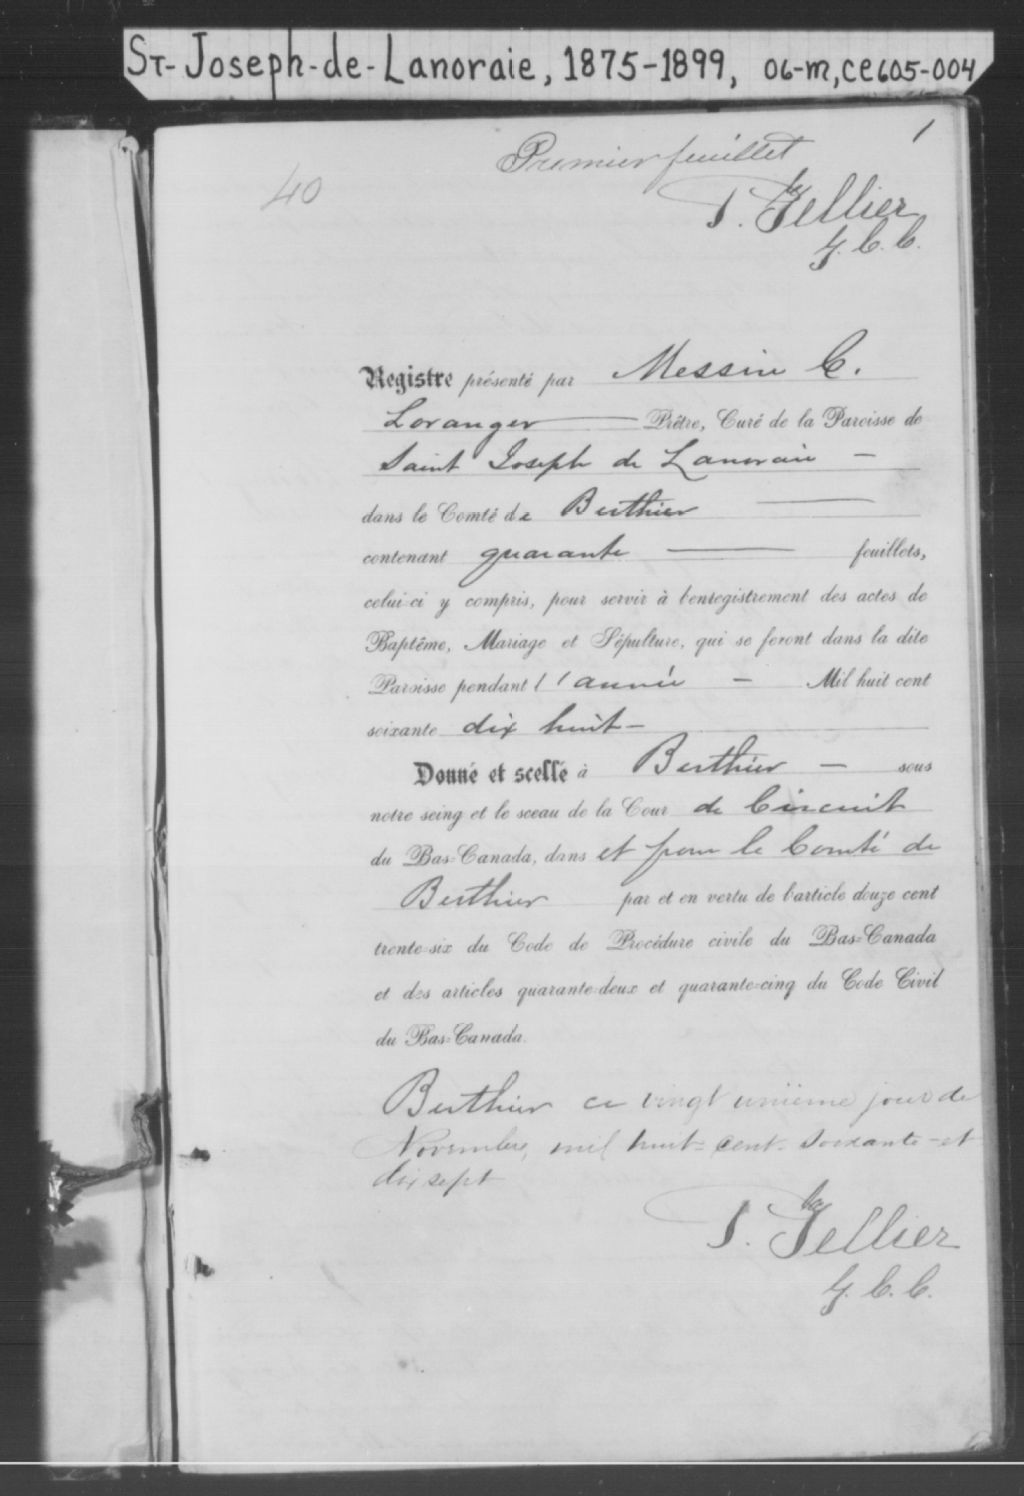 St-Joseph-de-Lanoraie, 1875-1899, 06-M, CE605-004
1
Premier feuillet
40
Tellier
G. C. C.
Registre présenté par Messire C.
Loranger Prêtre, Curé de la Paroisse de
Saint Joseph de Lanoraie -
dans le Comté de Berthier
contenant quarante feuillets,
celui-ci y compris, pour servir à l'enregistrement des actes de
Baptême, Mariage et Sépulture, qui se feront dans la dite
Paroisse pendant l'année - Mil huit cent
soixante dix huit -
Donné et scellé à Berthier - sous
notre seing et le sceau de la Cour de Circuit
du Bas-Canada, dans et pour le Comté de
Berthier par et en vertu de l'article douze cent
trente-six du Code de Procédure civile du Bas-Canada
et des articles quarante-deux et quarante-cinq du Code Civil
du Bas-Canada.
Berthier ce vingt unième jour de
Novembre, mil huit-cent-soixante-et
dix sept
Tellier
G. C. C.